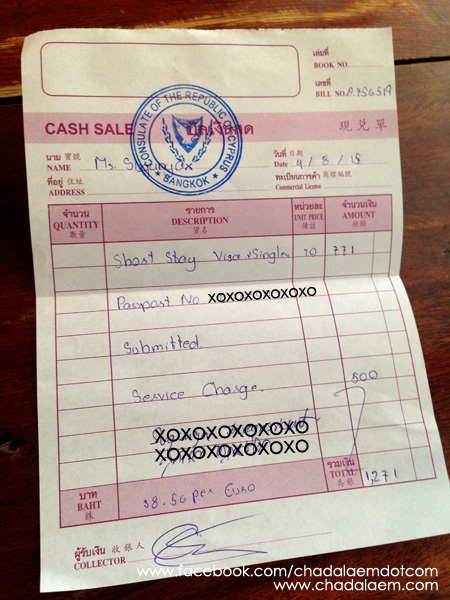 เล่มที่
BOOK NO.
เลขที่
BILL NO.
CONSULATE OF THE REPUBLIC OF CYPRUS
BANGKOK
CASH SALE บิลเงินสด 現兌單
นาม 寶號
NAME Ms.
วันที่ 日期
Date 4/8/15
ที่อยู่ 住址
ADDRESS
ทะเบียนการค้า 商標編號
Commercial License
จำนวน รายการ หน่วยละ จำนวนเงิน
QUANTITY DESCRIPTION UNIT PRICE AMOUNT
數量 貨名 備註
Short Stay Visa (Single) 20 771
Passport No XOXOXOXOXOXO
Submitted.
Service Charge. 500
XOXOXOXOXOXO
XOXOXOXOXOXO
บาท
BAHT
銖
38.56 per EURO
รวมเงิน
TOTAL 1,271
共銀
ผู้รับเงิน 收銀人
COLLECTOR
www.facebook.com/chadalaemdotcom
www.chadalaem.com